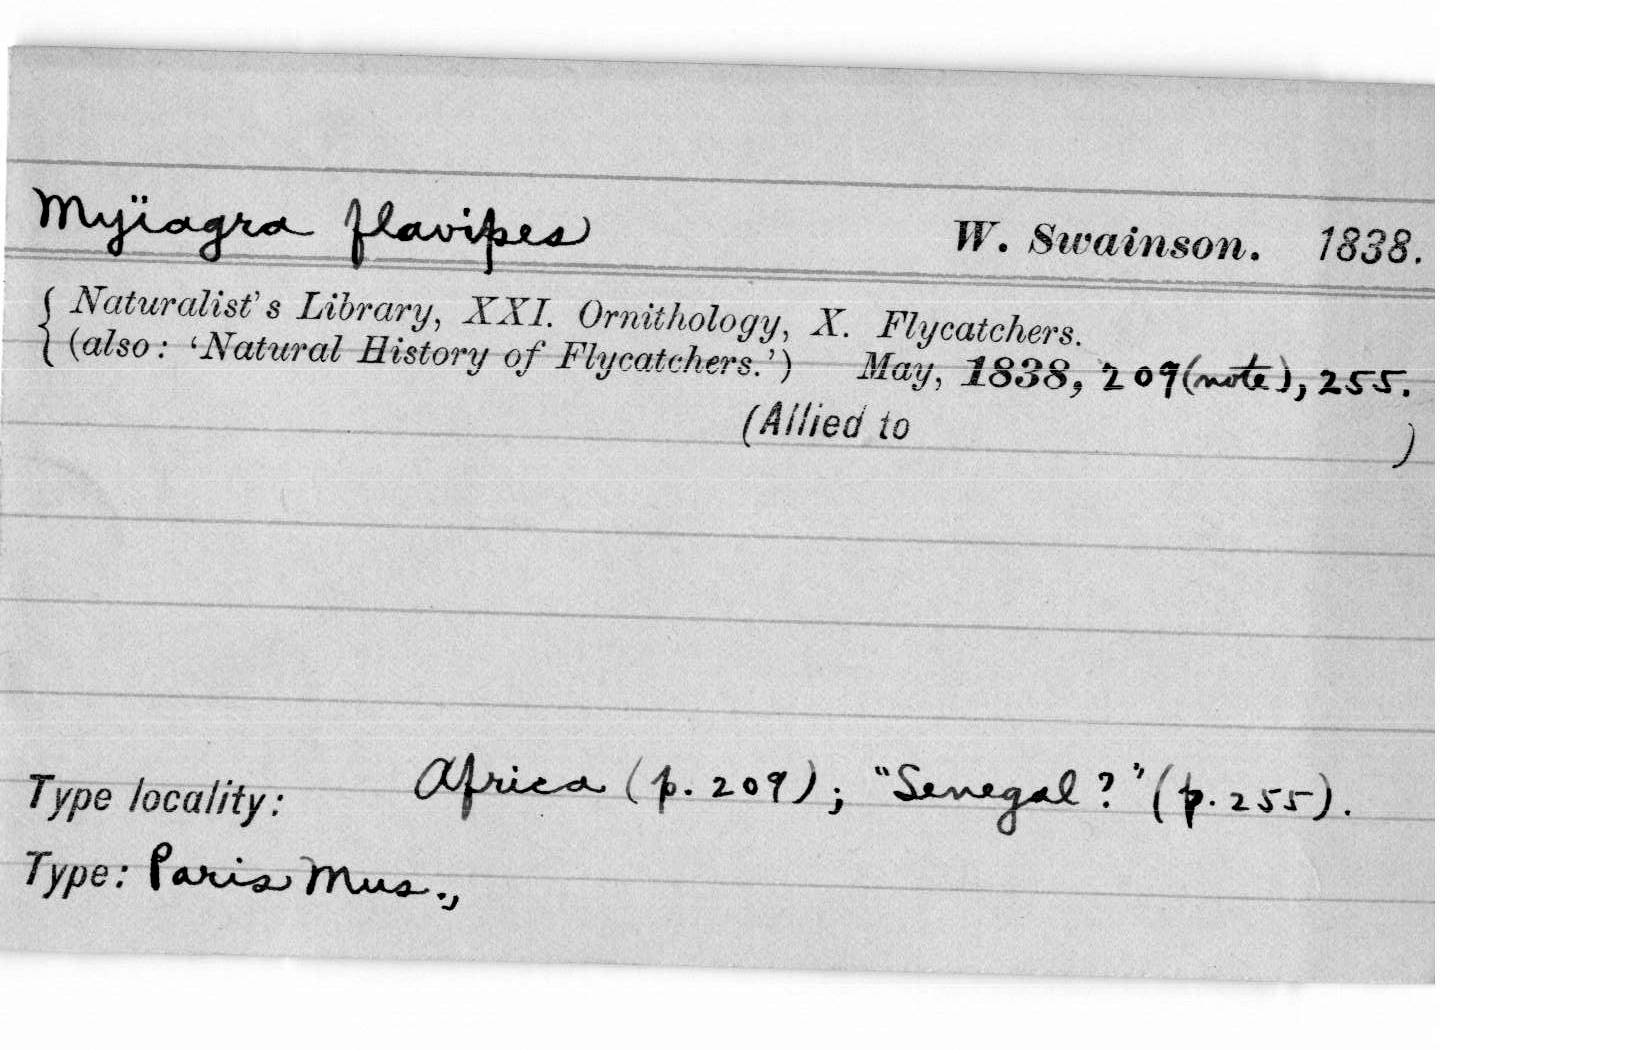 Myïagra flavipes W. Swainson. 1838.
Naturalist's Library, XXI. Ornithology, X. Flycatchers.
(also: 'Natural History of Flycatchers.') May, 1838, 209(note), 255.
(Allied to )
Type locality: Africa (p. 209); "Senegal?" (p. 255).
Type: Paris Mus.,